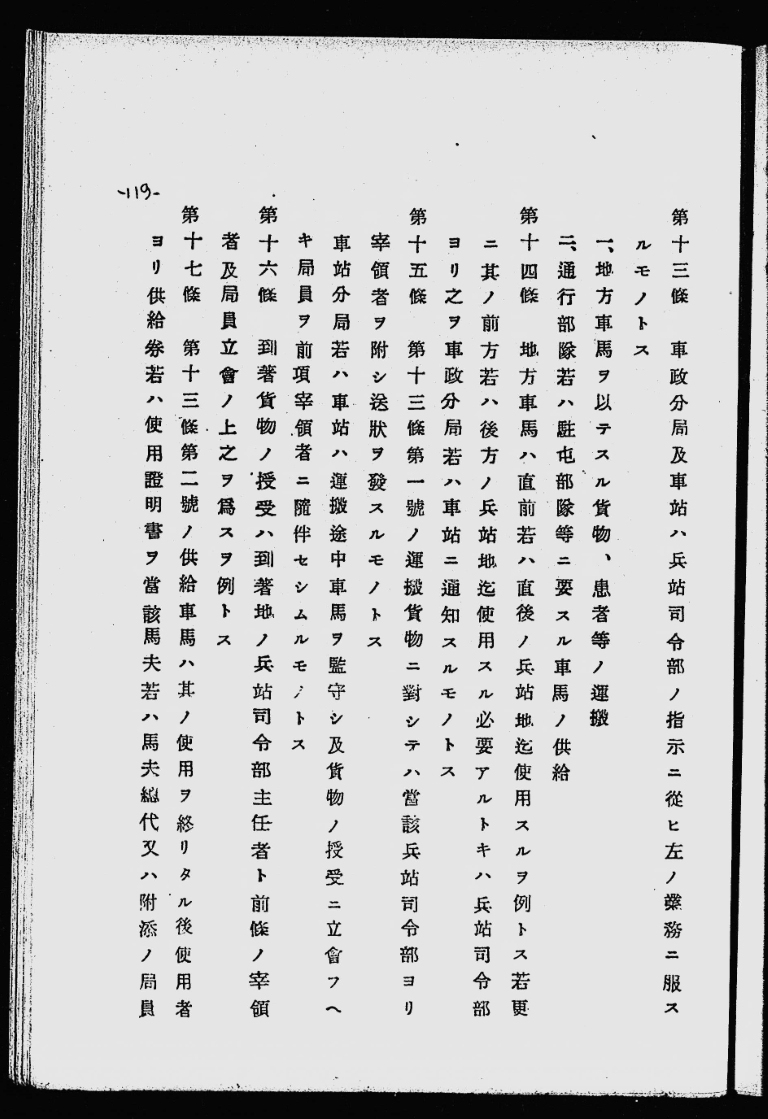 -119-
第十三條　車政分局及車站ハ兵站司令部ノ指示ニ從ヒ左ノ業務ニ服ス
ルモノトス
一、地方車馬ヲ以テスル貨物、患者等ノ運搬
二、通行部隊若ハ駐屯部隊等ニ要スル車馬ノ供給
第十四條　地方車馬ハ直前若ハ直後ノ兵站地迄使用スルヲ例トス若更
ニ其ノ前方若ハ後方ノ兵站地迄使用スル必要アルトキハ兵站司令部
ヨリ之ヲ車政分局若ハ車站ニ通知スルモノトス
第十五條　第十三條第一號ノ運搬貨物ニ對シテハ當該兵站司令部ヨリ
宰領者ヲ附シ送狀ヲ發スルモノトス
車站分局若ハ車站ハ運搬途中車馬ヲ監守シ及貨物ノ授受ニ立會フヘ
キ局員ヲ前項宰領者ニ隨伴セシムルモノトス
第十六條　到著貨物ノ授受ハ到著地ノ兵站司令部主任者ト前條ノ宰領
者及局員立會ノ上之ヲ爲スヲ例トス
第十七條　第十三條第二號ノ供給車馬ハ其ノ使用ヲ終リタル後使用者
ヨリ供給券若ハ使用證明書ヲ當該馬夫若ハ馬夫總代又ハ附添ノ局員